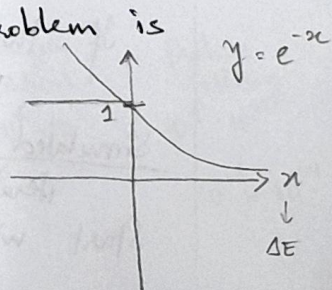 problem is
y = e^-x
1
x
↓
ΔE